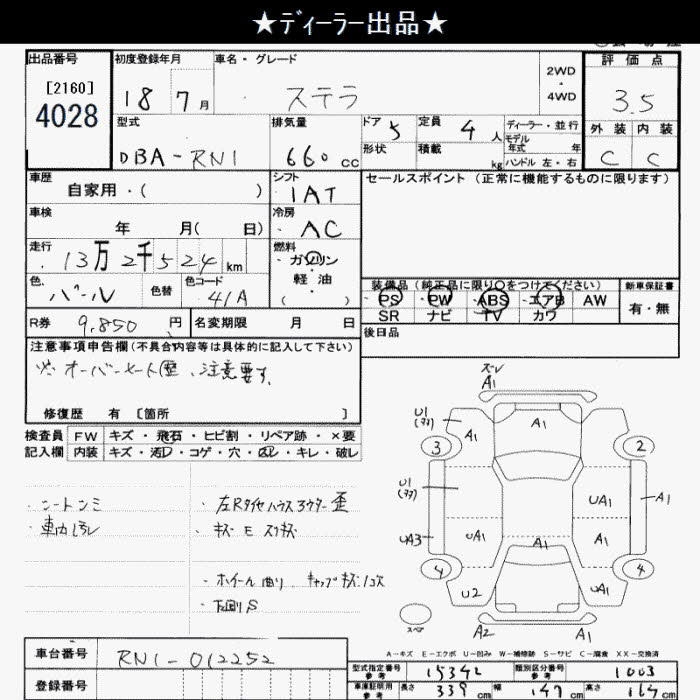 ★ディーラー出品★
出品番号 初度登録年月 車名・グレード 2WD・4WD 評価点
[2160] 4028 18 7月 ステラ 3.5
型式 排気量 ドア 5 定員 4人 ディーラー・並行 外装 内装
DBA-RN1 660cc 形状 積載 kg モデル年式 年 C C
ハンドル 左・右
車歴 シフト セールスポイント (正常に機能するものに限ります)
自家用・( ) IAT
車検 冷房
年 月( 日) AC
走行 燃料
13万2千524km ガソリン・軽油・( )
色 色替 色コード 装備品 (純正品に限り○をつけてください) 新車保証書
パール 41A PS PW ABS エアB AW 有・無
SR ナビ TV カワ
R券 9,850円 名変期限 月 日 後日品
注意事項申告欄(不具合内容等は具体的に記入して下さい)
※オーバーヒート歴、注意要す。
修復歴 有 [箇所 ]
検査員 FW キズ・飛石・ヒビ割・リペア跡・×要
記入欄 内装 キズ・汚レ・コゲ・穴・・キレ・破レ
・シートシミ
・車内汚レ
・キズ E スリキズ
・ホイール曲り キャップキズ
・下廻りS
ズレ
A1
U1 A1 A1
3 2
U1 UA1 A1
UA3 UA1 A1 A1
4 4
U2 UA1
スペア A2 A1
A-キズ E-エクボ U-凹み W-補修跡 S-サビ C-腐食 XX-交換済
車台番号 RN1-012252
登録番号
型式指定番号 参考 15342 類別区分番号 参考 1003
車庫証明用 参考 長さ 339cm 幅 147cm 高さ 164cm